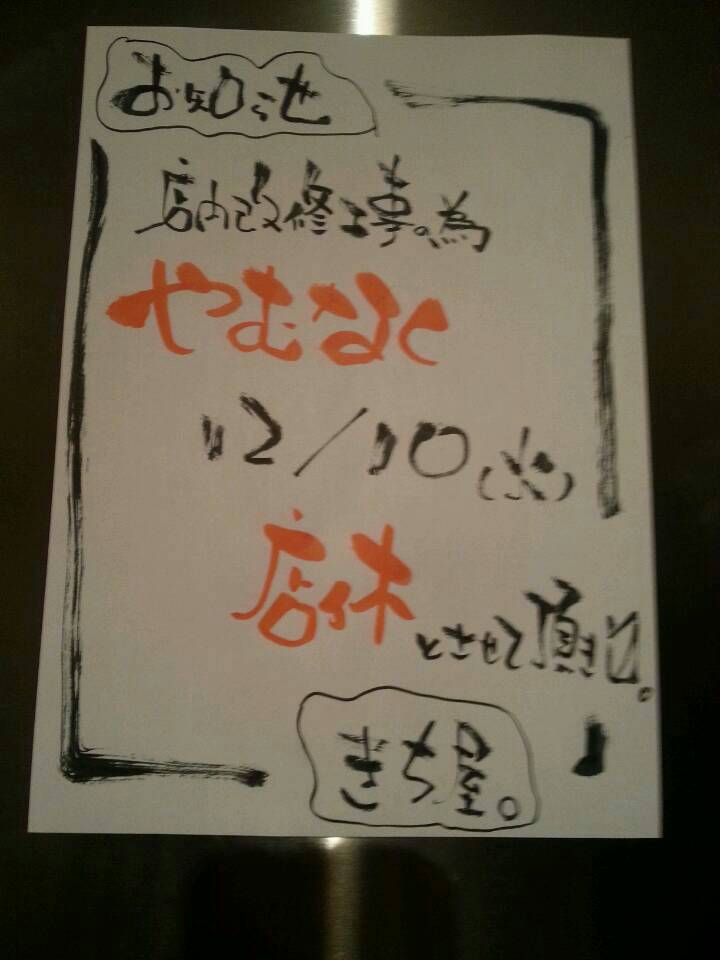 お知らせ
店内改修工事の為
やむなく
12/10(火)
店休とさせて頂きます。
きち屋。